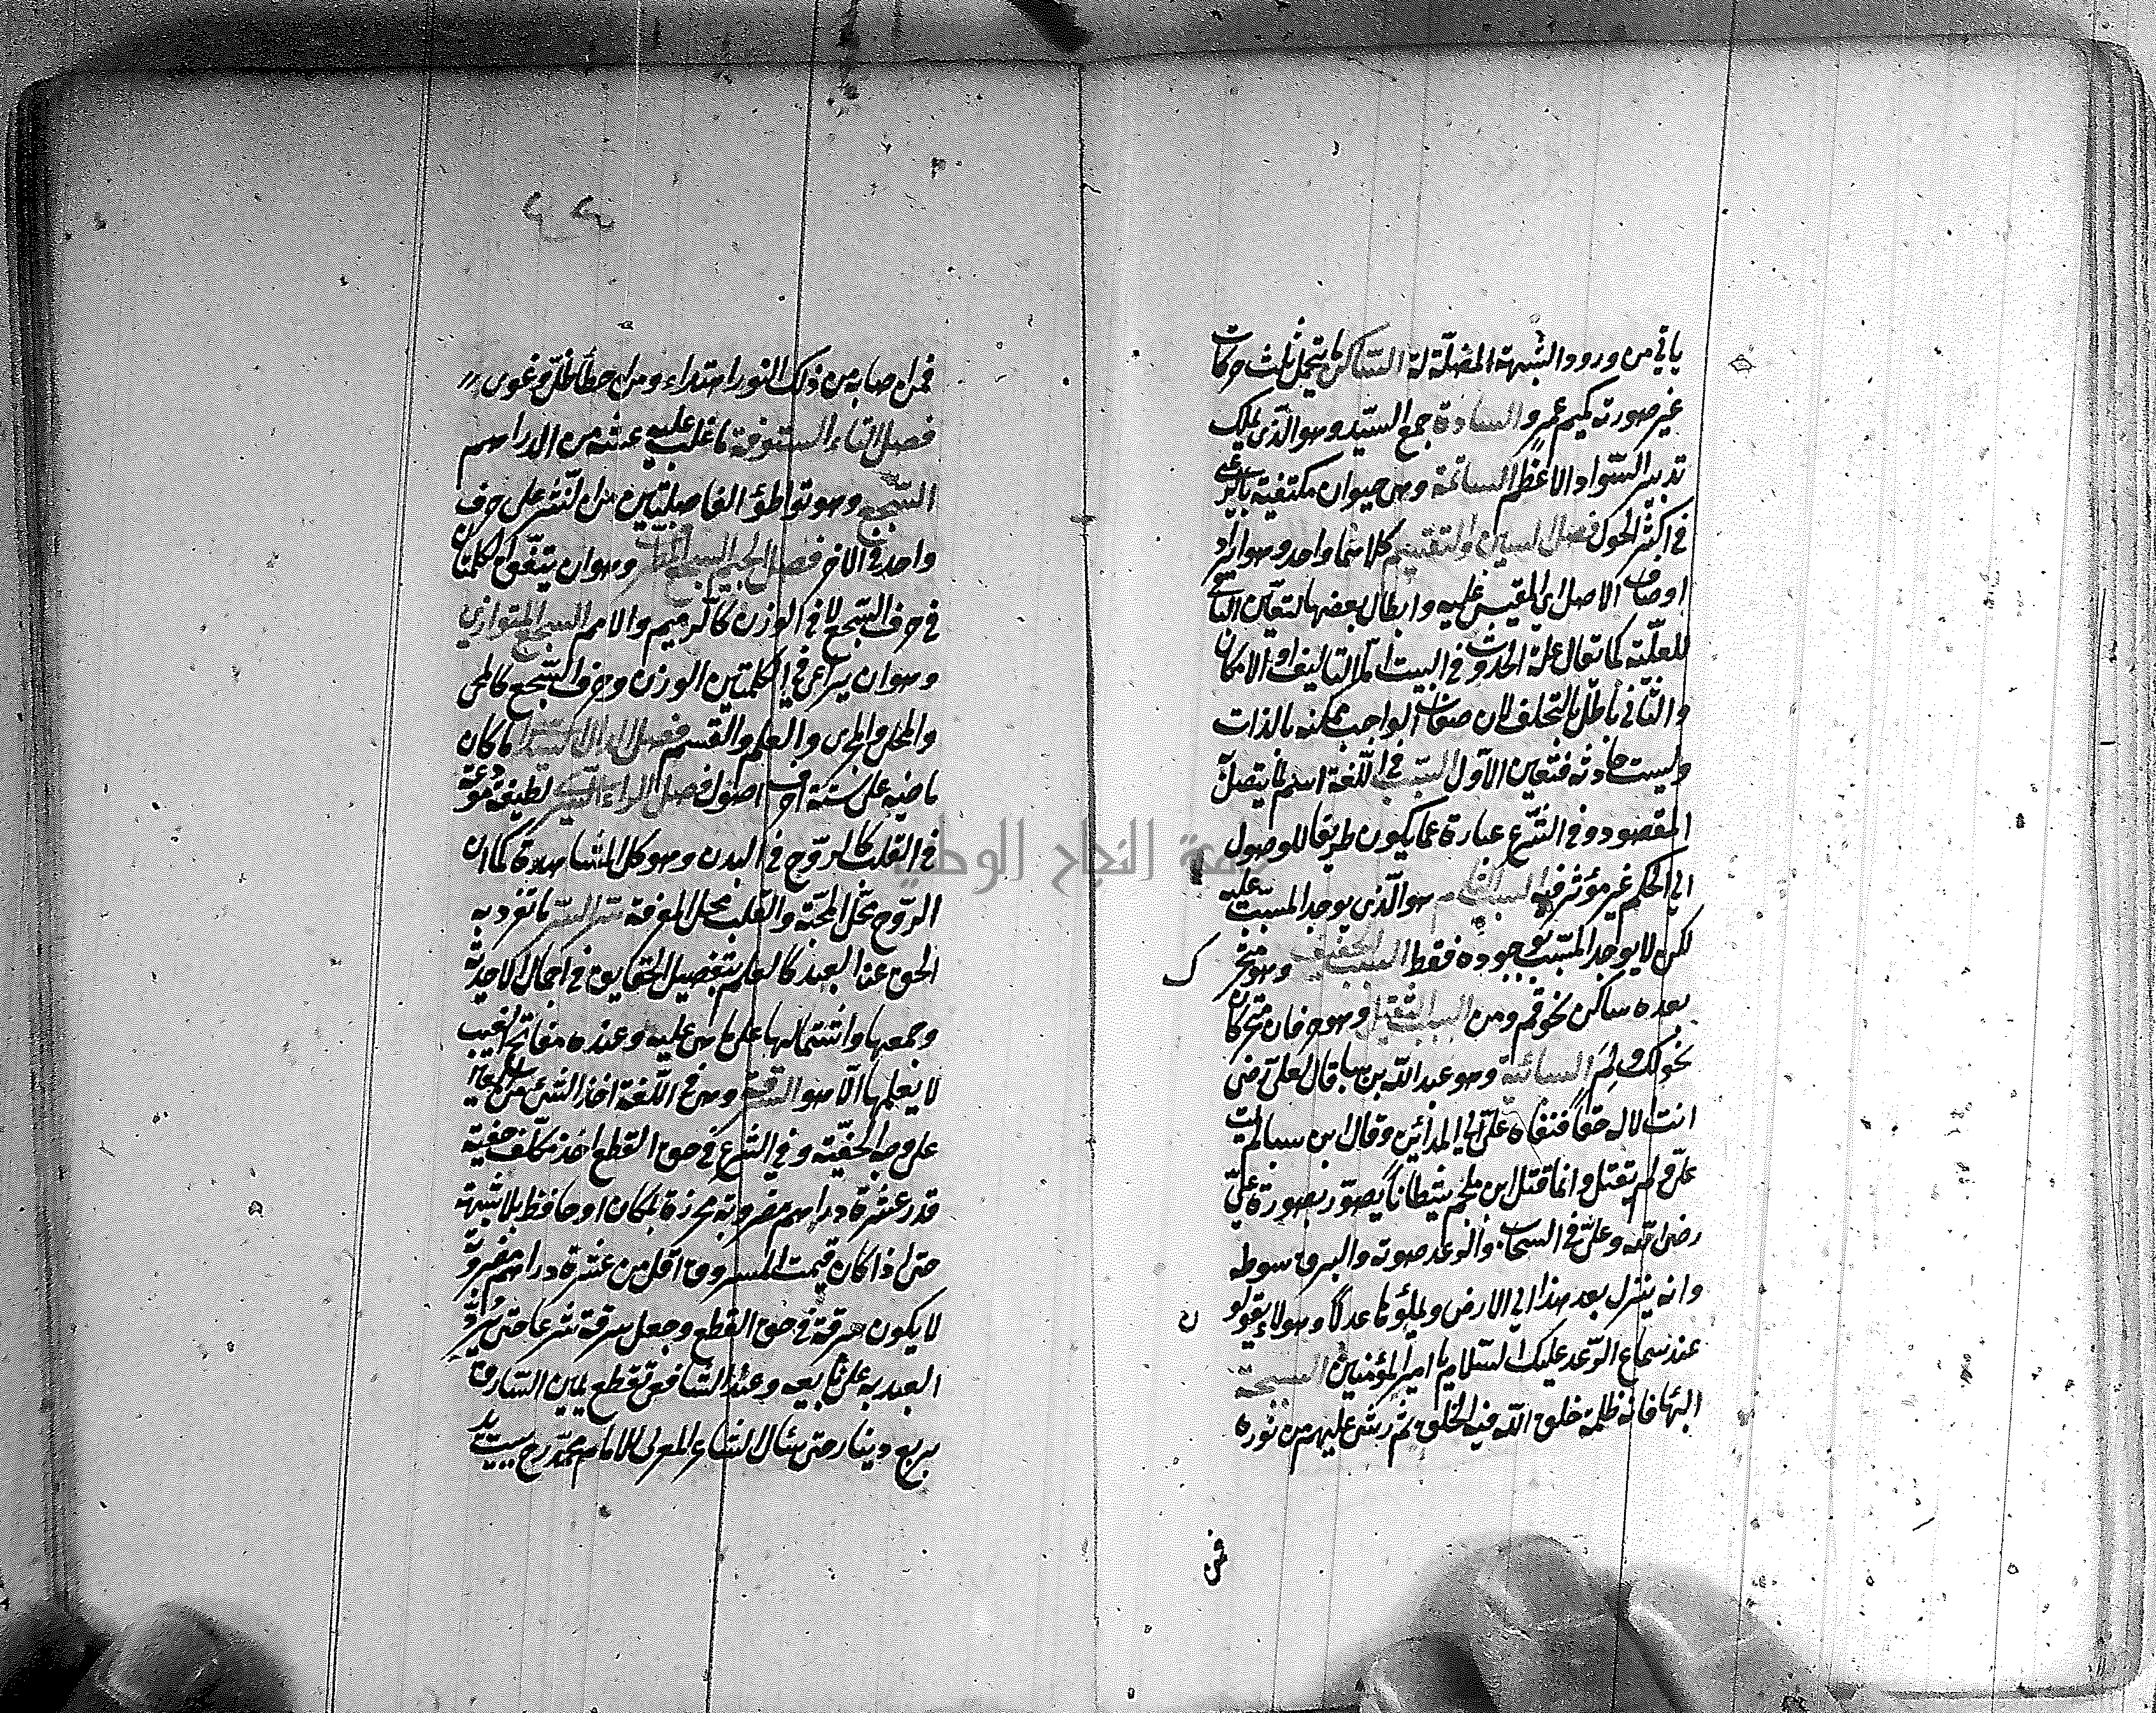 ياتى من ورود الشبهة المضلة له الساكن ما يحتمل ثلث حركات
غير صورته كميم عمرو السادة جمع السيد وهو الذى يملك
تدبير السواد الاعظم السائمة وهى حيوان مكتفية بالرعى
فى اكثر الحول فصل السين والتقسيم كلاهما واحد وهو ايراد
اوصاف الاصل اى المقيس عليه وابطال بعضها ليتعين الباقى
للعلية كما يقال علة الحدوث فى البيت اما التاليف او الامكان
والثانى باطل بالتخلف لان صفات الواجب ممكنة بالذات
وليست حادثة فتعين الاول السبب فى اللغة اسم لما يتوصل
المقصود وفى الشرع عبارة عما يكون طريقا للوصول
الى الحكم غير مؤثر فيه السبب التام هو الذى يوجد المسبب عليه
لكن لا يوجد المسبب بوجوده فقط السبب الخفيف وهو متحرك
بعده ساكن نحو قم ومن السبب الثقيل وهو حرفان متحركان
نحو لك ولم السبائية وهو عبد الله بن سبا قال لعلى رضى
انت الاله حقا فنفاه على الى المدائن وقال ابن سبا لم يمت
على ولم يقتل وانما قتل ابن ملجم شيطانا يصور بصورة على
رضى الله وعلى فى السحاب والرعد صوته والبرق سوطه
وانه ينزل بعد هذا الى الارض ويملؤها عدلا وهولاء يقولون
عند سماع الرعد عليك السلام يا امير المؤمنين السبحة
الهباء فانه ظلمة خلق الله فيه الخلق ثم رش عليهم من نوره
فمن
فمن اصابه من ذلك النور اهتداء ومن اخطأ ضل وغوى
فصل التاء الستوقة ما غلب عليه غشه من الدراهم
السجع وهو تواطؤ الفاصلتين من النثر على حرف
واحد فى الاخر فصل الجيم السجع المطرف وهو ان يتفق الكلمتان
فى حرف السجع لا فى الوزن كالرميم والامم السجع المتوازى
وهو ان يراعى فى الكلمتين الوزن وحرف السجع كالمحى
والمجرى والعلم والقسم فصل الدال السداسى ما كان
ماضيه على ستة احرف اصول فصل الراء السر لطيفة مودعة
فى القلب كالروح فى البدن وهو محل المشاهدة كما ان
الروح محل المحبة والقلب محل المعرفة سر السر ما تفرد به
الحق عن العبد كالعلم بتفصيل الحقايق فى اجمال الاحدية
وجمعها واشتمالها على ما هى عليه وعنده مفاتح الغيب
لا يعلمها الا هو السرقة وهى فى اللغة اخذ الشئ من الغير
على وجه الخفية وفى الشرع فى حق القطع اخذ مكلف خفية
قدر عشرة دراهم مضروبة محرزة بمكان او حافظ بلا شبهة
حتى اذا كان قيمت المسروق اقل من عشرة دراهم مضروبة
لا يكون سرقة فى حق القطع وجعل سرقة شرعا حتى يرد
العبد به على بايعه وعند الشافعى تقطع يمين السارق
بربع دينار حتى سئال الشاعر المعرى للامام محمد رح بيت يد